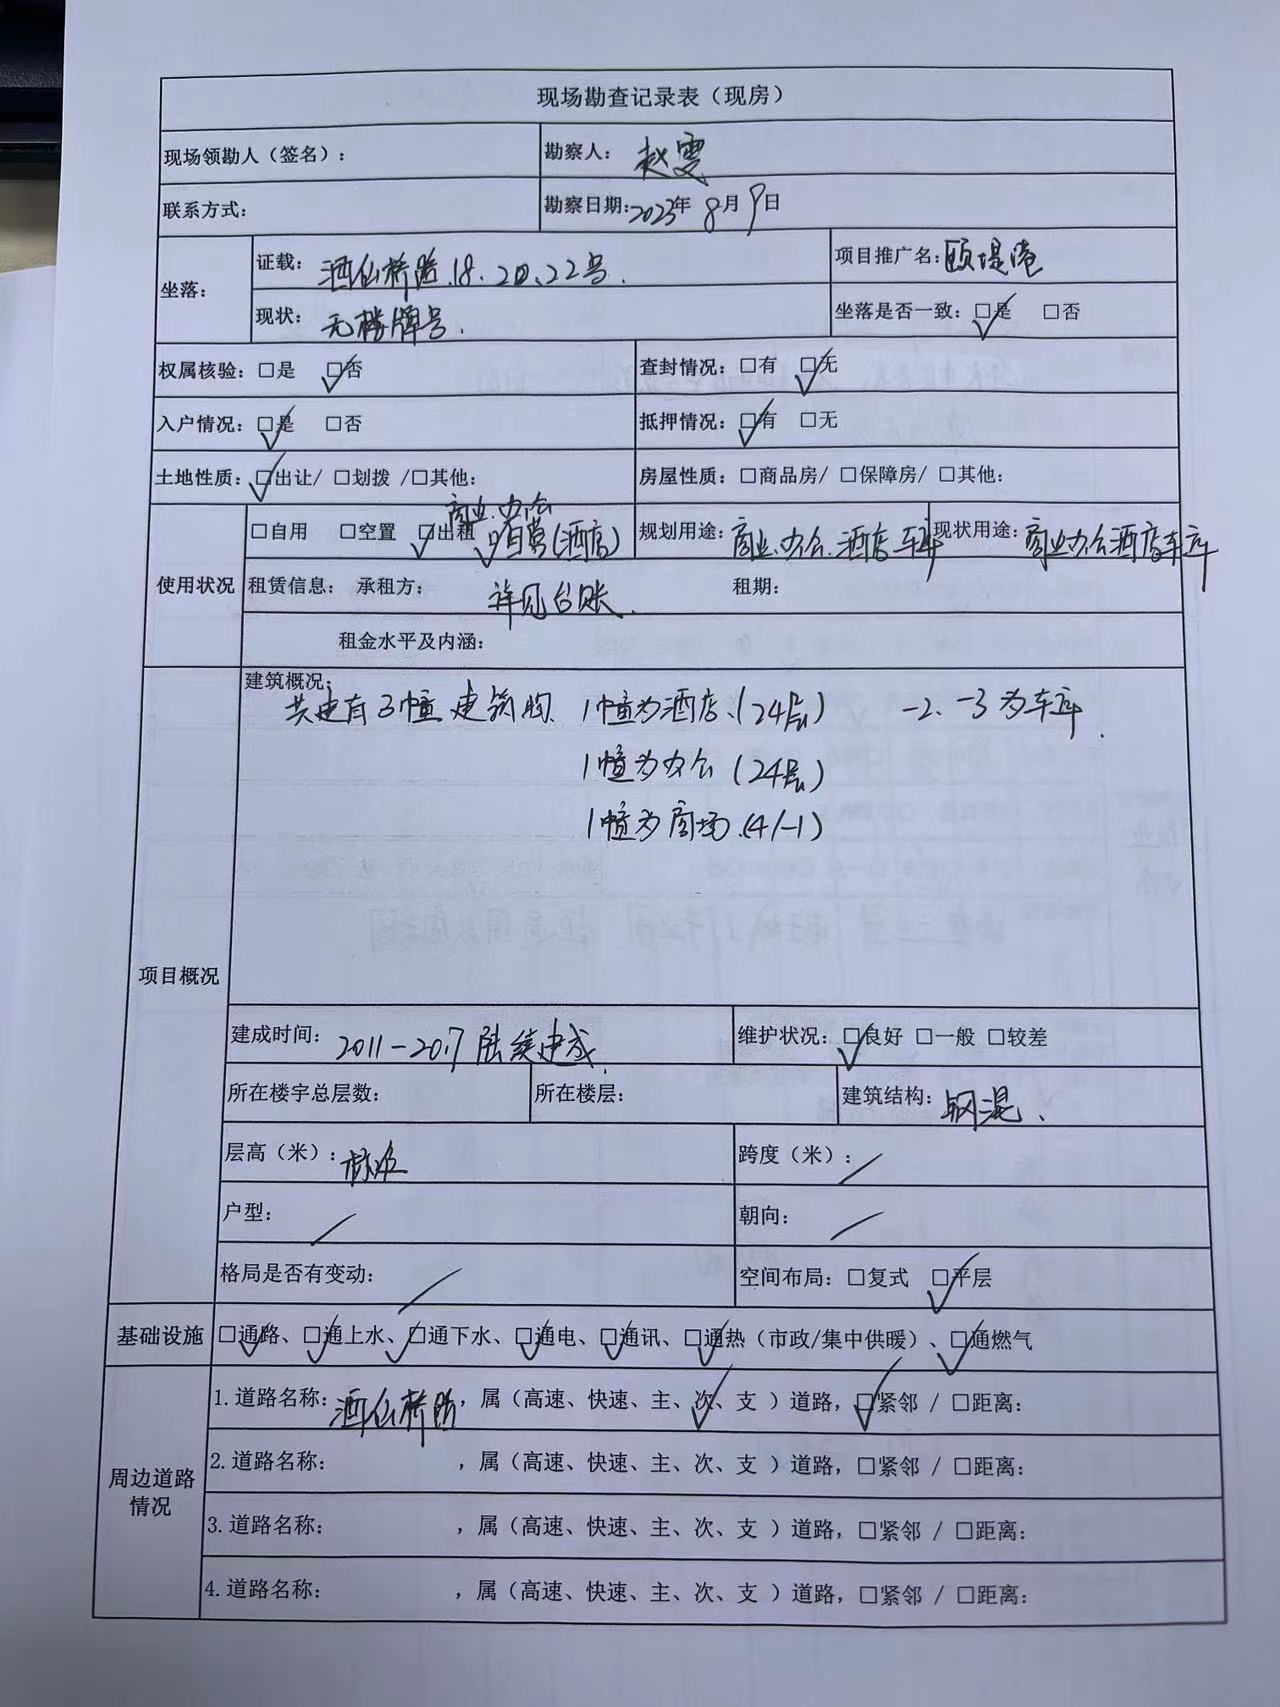 现场勘查记录表（现房）
现场领勘人（签名）： 勘察人： 赵雯
联系方式： 勘察日期：2023年 8月 9日
坐落： 证载： 酒仙桥路.18、20、22号. 项目推广名：颐堤港
现状： 无楼牌号. 坐落是否一致：☑是 □否
权属核验：□是 ☑否 查封情况：□有 ☑无
入户情况：☑是 □否 抵押情况：☑有 □无
土地性质：☑出让/ □划拨 /□其他： 房屋性质：□商品房/ □保障房/ □其他：
商业.办公
使用状况 □自用 □空置 ☑出租 ☑自营(酒店) 规划用途：商业.办公.酒店.车库 现状用途：商业办公酒店车库
租赁信息： 承租方： 详见台账. 租期：
租金水平及内涵：
项目概况 建筑概况：
共建有3幢建筑物. 1幢为酒店.(24层) -2、-3为车库.
1幢为办公 (24层)
1幢为商场.(4/-1)
建成时间： 2011-2017陆续建成. 维护状况：☑良好 □一般 □较差
所在楼宇总层数： 所在楼层： 建筑结构： 钢混.
层高（米）：标准 跨度（米）：/
户型： / 朝向： /
格局是否有变动： / 空间布局：□复式 ☑平层
基础设施 ☑通路、☑通上水、☑通下水、☑通电、☑通讯、☑通热（市政/集中供暖）、☑通燃气
周边道路情况 1.道路名称：酒仙桥路，属（高速、快速、主、次✓、支 ）道路，☑紧邻 / □距离：
2.道路名称： ，属（高速、快速、主、次、支 ）道路，□紧邻 / □距离：
3.道路名称： ，属（高速、快速、主、次、支 ）道路，□紧邻 / □距离：
4.道路名称： ，属（高速、快速、主、次、支 ）道路，□紧邻 / □距离：